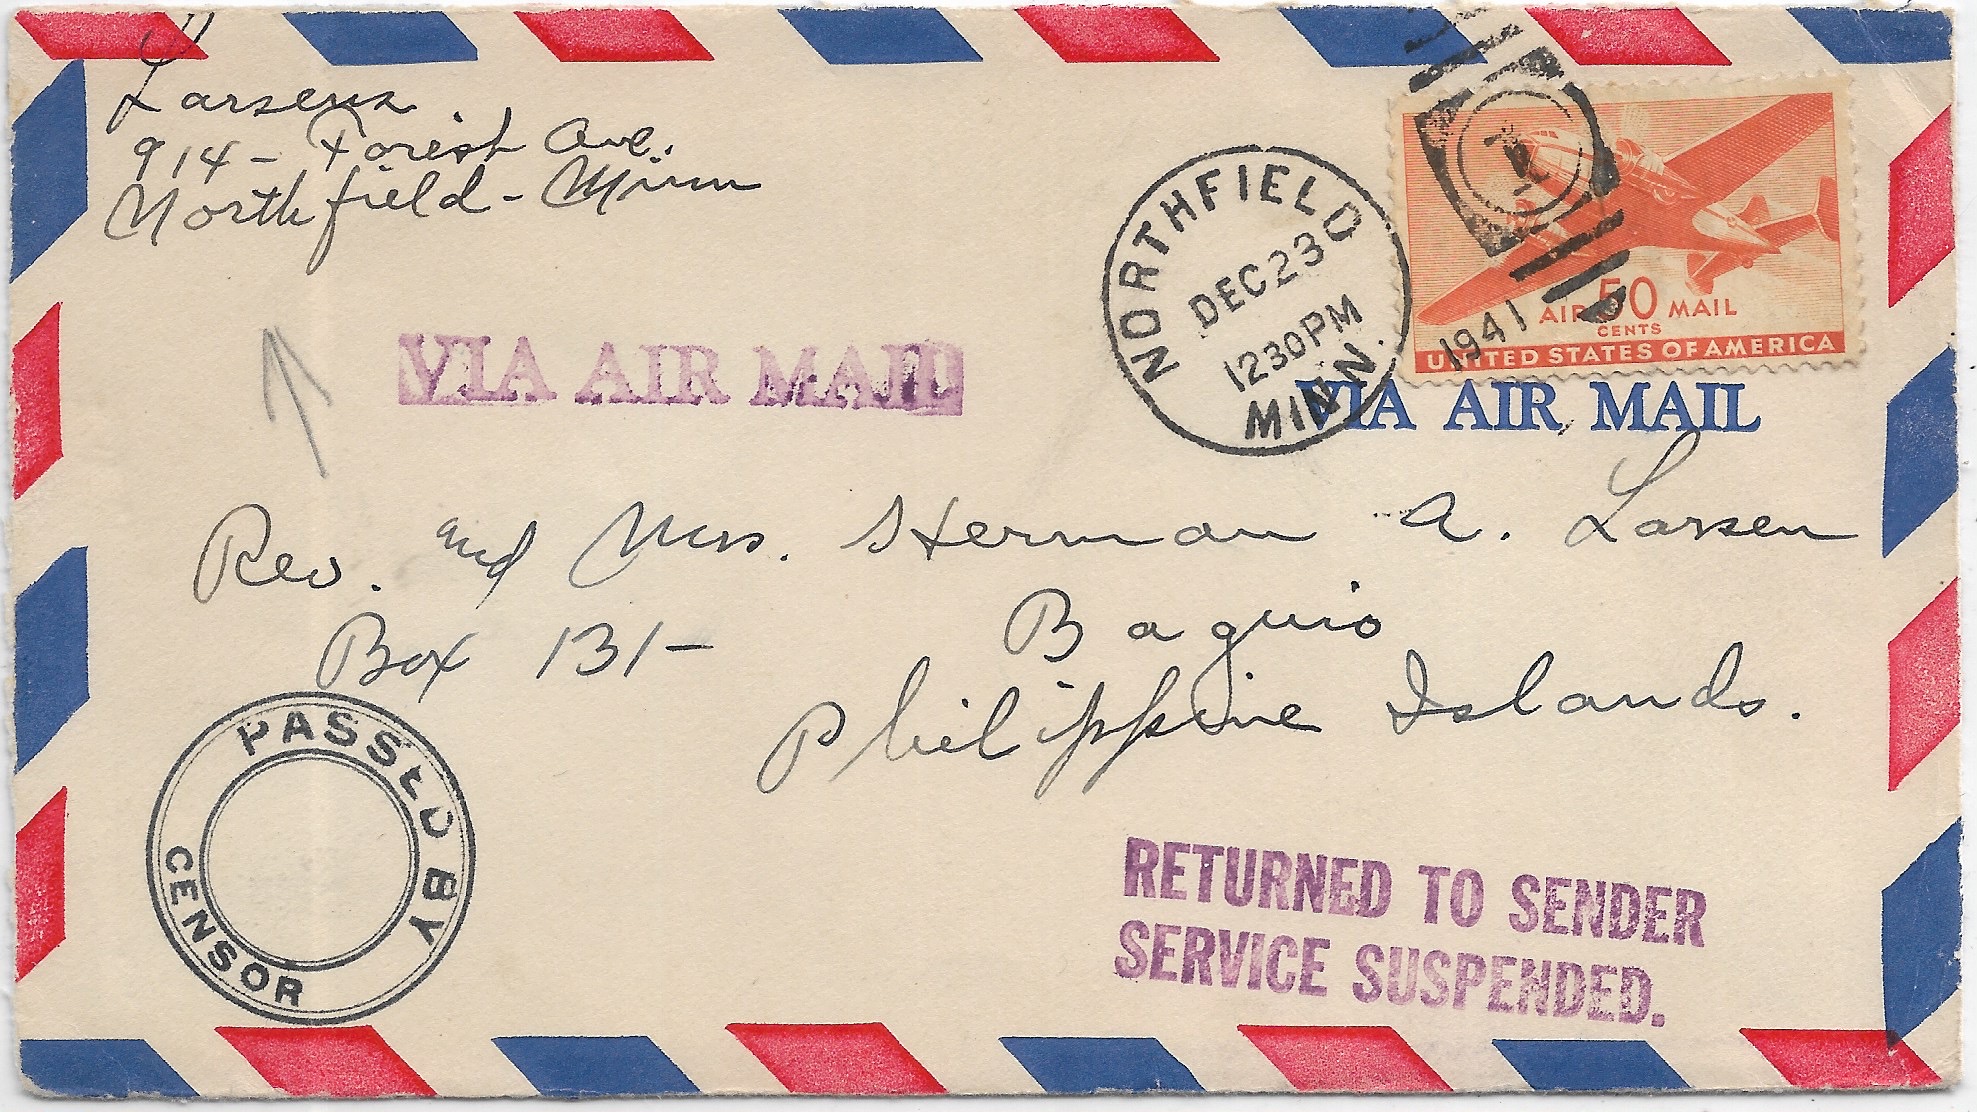 Larsens
914 - Forest Ave.
Northfield - Minn
VIA AIR MAIL
NORTHFIELD
DEC 23
1230PM
MINN.
1941
AIR 50 MAIL
CENTS
UNITED STATES OF AMERICA
VIA AIR MAIL
Rev. and Mrs. Herman A. Larsen
Box 131- Baguio
Philippine Islands.
PASSED BY
CENSOR
RETURNED TO SENDER
SERVICE SUSPENDED.